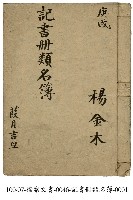 庚戌
記書冊類名簿
楊金木
葭月吉立